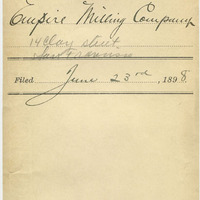 Empire Milling Company
14 Clay street
San Francisco
Filed June 23rd, 1898